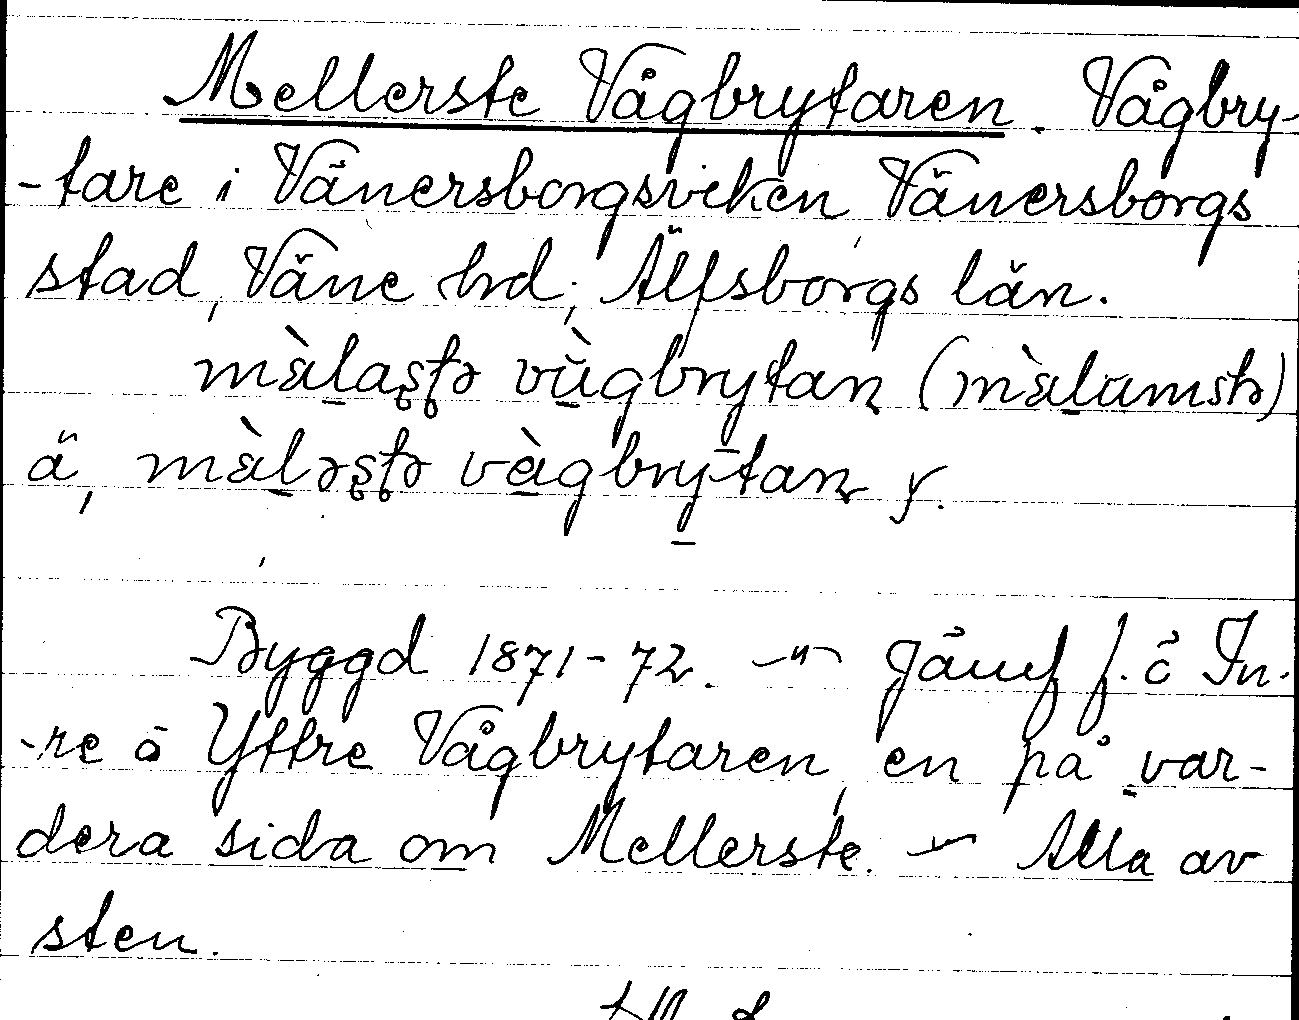 Mellerste Vågbrytaren. Vågbry-
-tare i Vänersborgsviken Vänersborgs
stad, Väne hd; Älfsborgs län.
màlaʂʈə vùgbrytaɳ (màlumstə)
ä, màləʂʈə vàgbrytaɳ y.
Byggd 1871-72. -"- Jämf f. ö In-
-re o Yttre Vågbrytaren, en på var-
dera sida om Mellerste. - Alla av
sten.